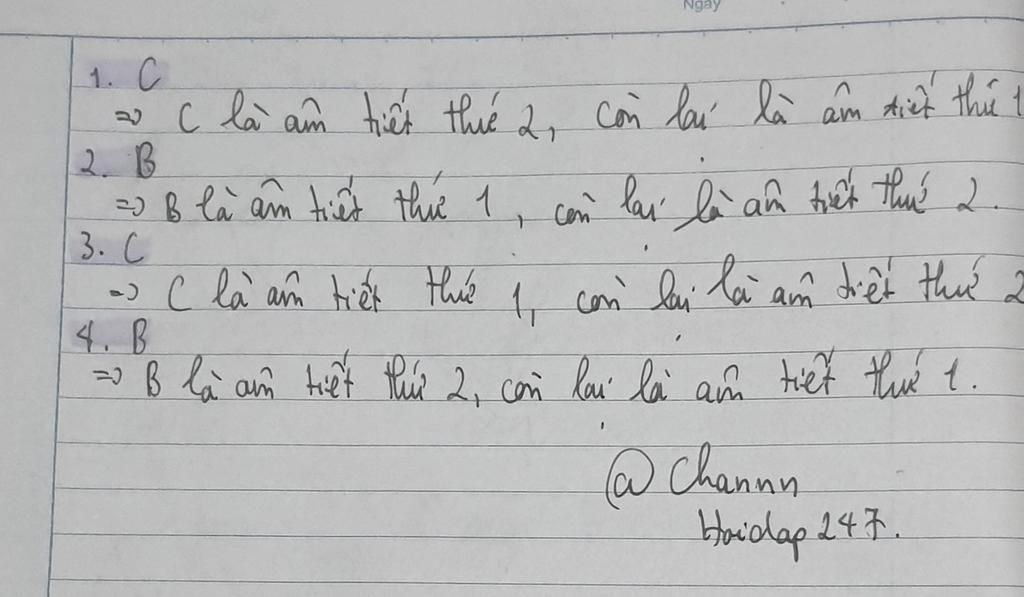 Ngày
1. C
=> C là âm tiết thứ 2, còn lại là âm tiết thứ 1
2. B
=> B là âm tiết thứ 1, còn lại là âm tiết thứ 2.
3. C
=> C là âm tiết thứ 1, còn lại là âm tiết thứ 2
4. B
=> B là âm tiết thứ 2, còn lại là âm tiết thứ 1.
@Channn
Hoidap247.